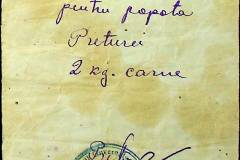 pentru popota
Preturei
2 kg. carne